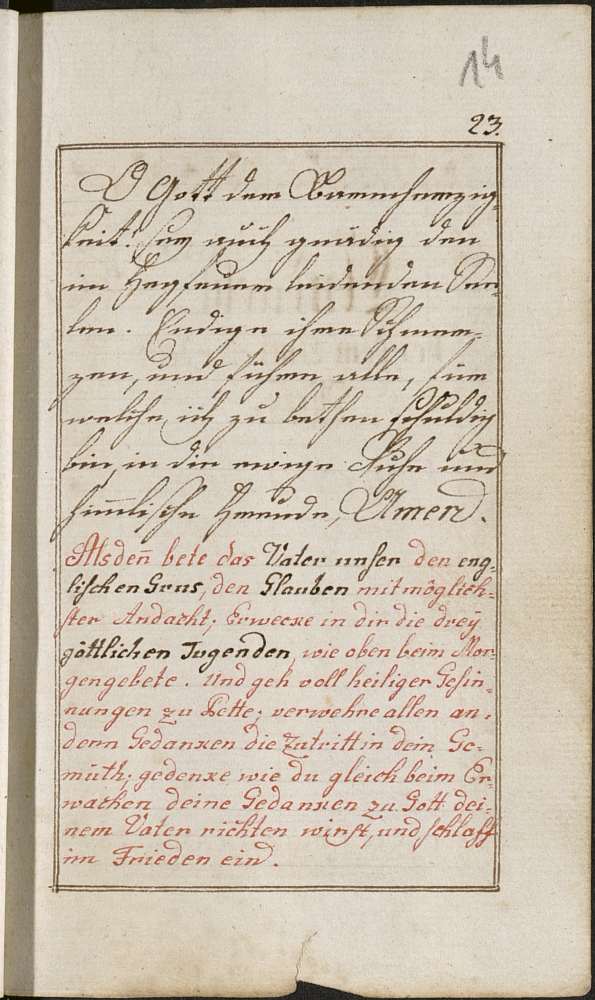 14
23.
O Gott der Barmherzig-
keit! sey auch gnädig den
im Fegfeuer leidenden See-
len. Endige ihre Schmer-
zen, und führe alle, für
welche ich zu bethen schuldig
bin, in die ewige Ruhe und
him̄lische Freude, Amen.
Alsden̄ bete das Vater unser den eng-
lischen Grus, den Glauben mit möglich-
ster Andacht; Erwecke in dir die drey
göttlichen Tugenden, wie oben beim Mor-
gengebete. Und geh voll heiliger Gesin-
nungen zu Bette; verwehre allen an-
dern Gedanken die Zutritt in dein Ge-
müth; gedenke wie du gleich beim Er-
wachen deine Gedanken zu Gott dei-
nem Vater richten wirst, und schlaff
im Frieden ein.